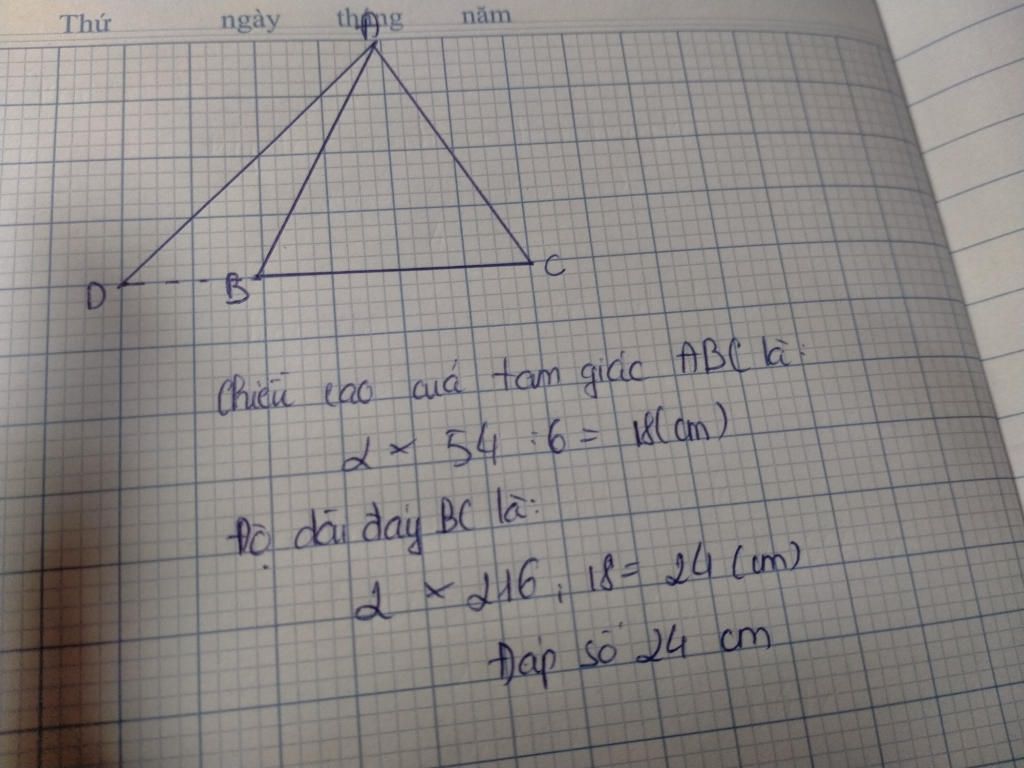 Thứ ngày tháng năm
A
D B C
Chiều cao cuả tam giác ABC là:
2 × 54 : 6 = 18 (cm)
Độ dài đáy BC là:
2 × 216 : 18 = 24 (cm)
Đáp số 24 cm